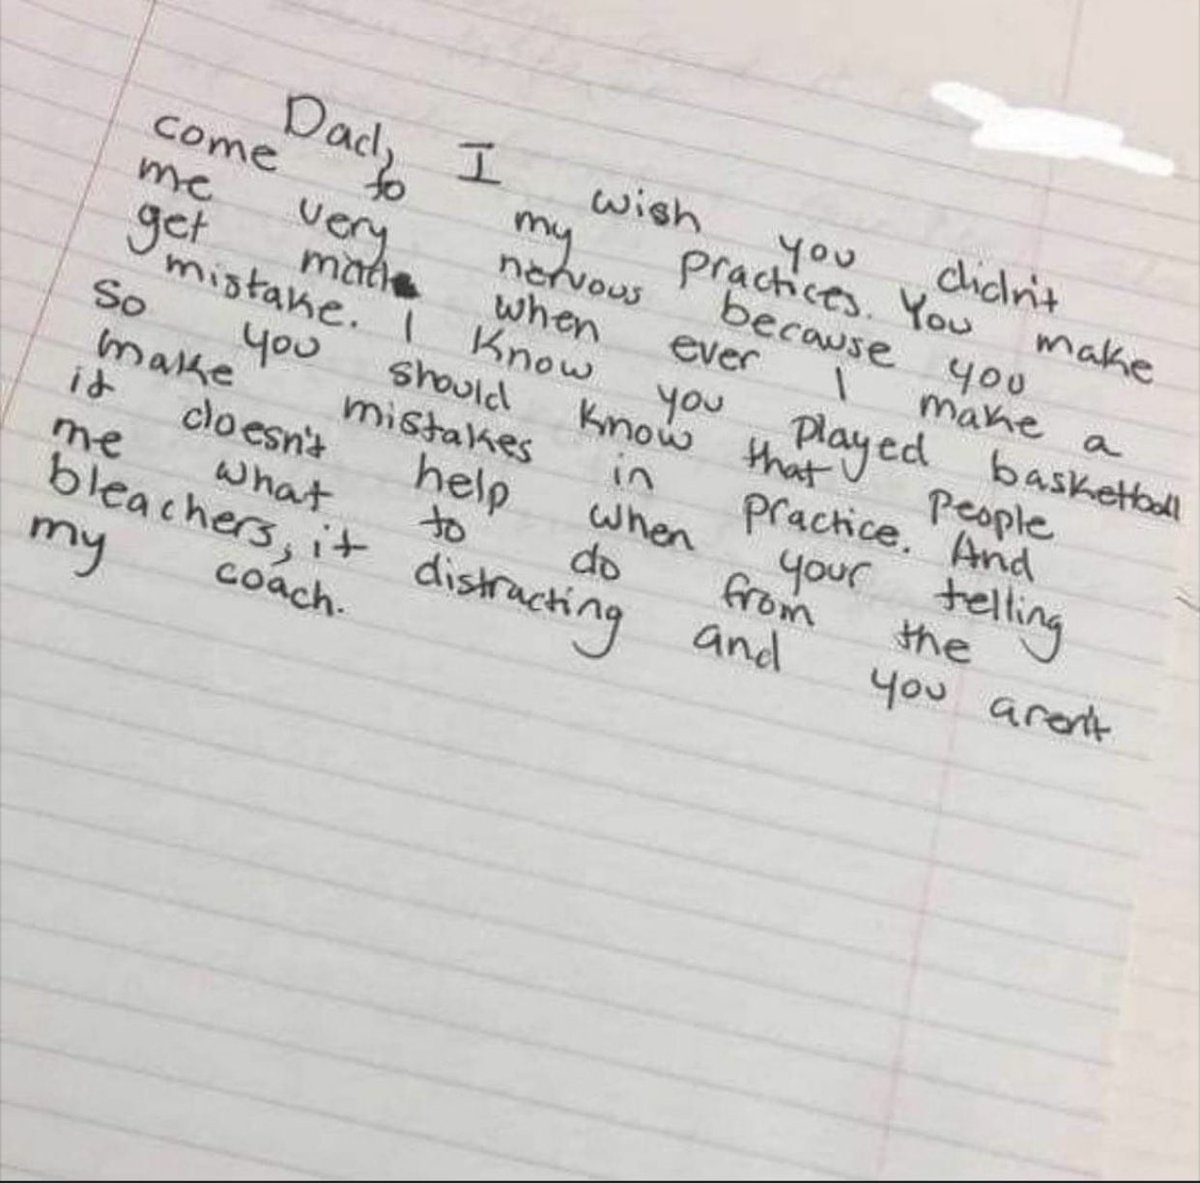 Dad, I wish you didn't
come to my practices. You make
me very nervous because you
get mad when ever I make a
mistake. I know you played basketball
so you should know that people
make mistakes in practice. And
it doesn't help when your telling
me what to do from the
bleachers, it distracting and you aren't
my coach.